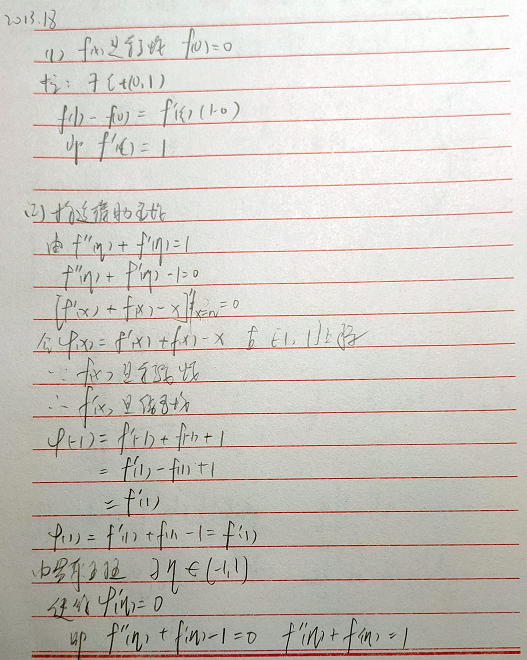 2013.18
(1) f(x)是奇函数 f(0)=0
拉: ∃ξ∈(0,1)
f(1)-f(0)=f'(ξ)(1-0)
即 f'(ξ)=1
(2) 构造辅助函数
由 f''(η)+f'(η)=1
f''(η)+f'(η)-1=0
[f'(x)+f(x)-x]'|x=η=0
令φ(x)=f'(x)+f(x)-x 在[-1,1]上
∵ f(x)是奇函数
∴ f'(x)是偶函数
φ(-1)=f'(-1)+f(-1)+1
=f'(1)-f(1)+1
=f'(1)
φ(1)=f'(1)+f(1)-1=f'(1)
由罗尔定理 ∃η∈(-1,1)
使得φ'(η)=0
即 f''(η)+f'(η)-1=0 f''(η)+f'(η)=1